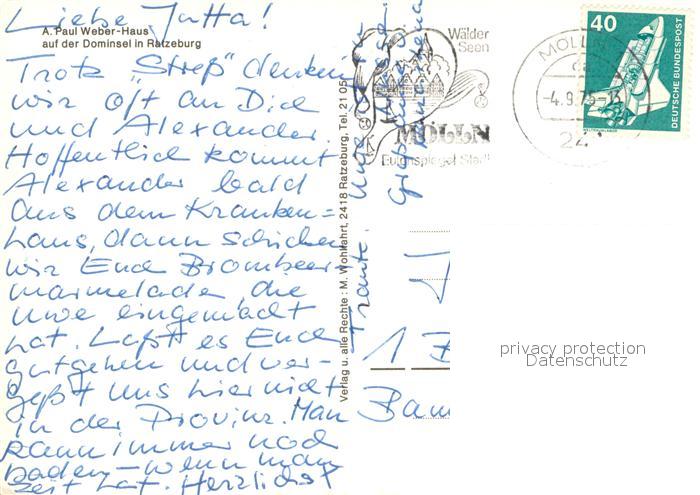 Liebe Jutta!
A. Paul Weber-Haus
auf der Dominsel in Ratzeburg
Trotz "Streß" denken
wir oft an Dich
und Alexander.
Hoffentlich kommt
Alexander bald
aus dem Kranken=
haus, dann schicken
wir Euch Brombeer-
marmelade, die
Uwe eingemacht
hat. Laßt es Euch
gutgehen und ver-
geßt uns hier nicht
in der Provinz. Man
kann immer noch
baden – wenn man
Zeit hat. Herzlichst
Verlag u. alle Rechte: M. Wohlfahrt, 2418 Ratzeburg, Tel. 21 05
Traute.
Wälder
Seen
MÖLLN
Eulenspiegel-Stadt
MÖLLN
-4.9.75
24
40
DEUTSCHE BUNDESPOST
WELTRAUMLABOR
1
privacy protection
Datenschutz